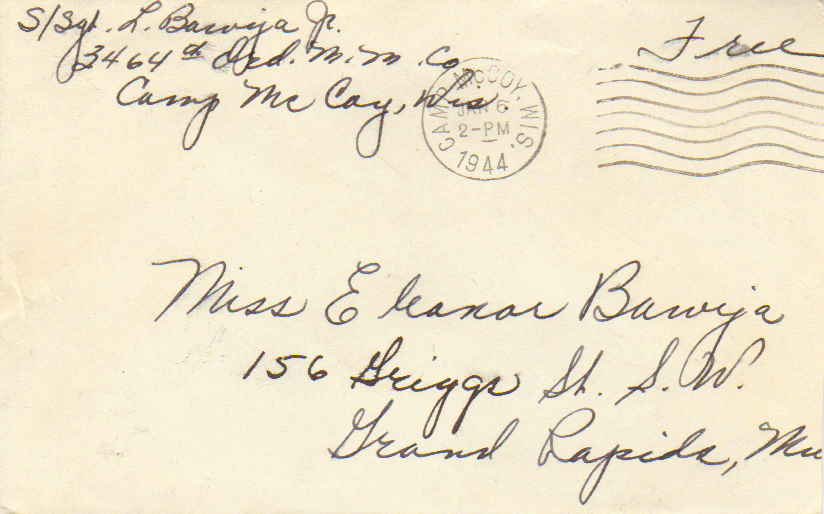 S/Sgt. L. Bawija Jr.
3464th Ord. M. M. Co.
Camp Mc Coy, Wis.
Free
CAMP MCCOY, WIS.
JAN 6
2-PM
1944
Miss Eleanor Bawija
156 Griggs St. S. W.
Grand Rapids, Mi